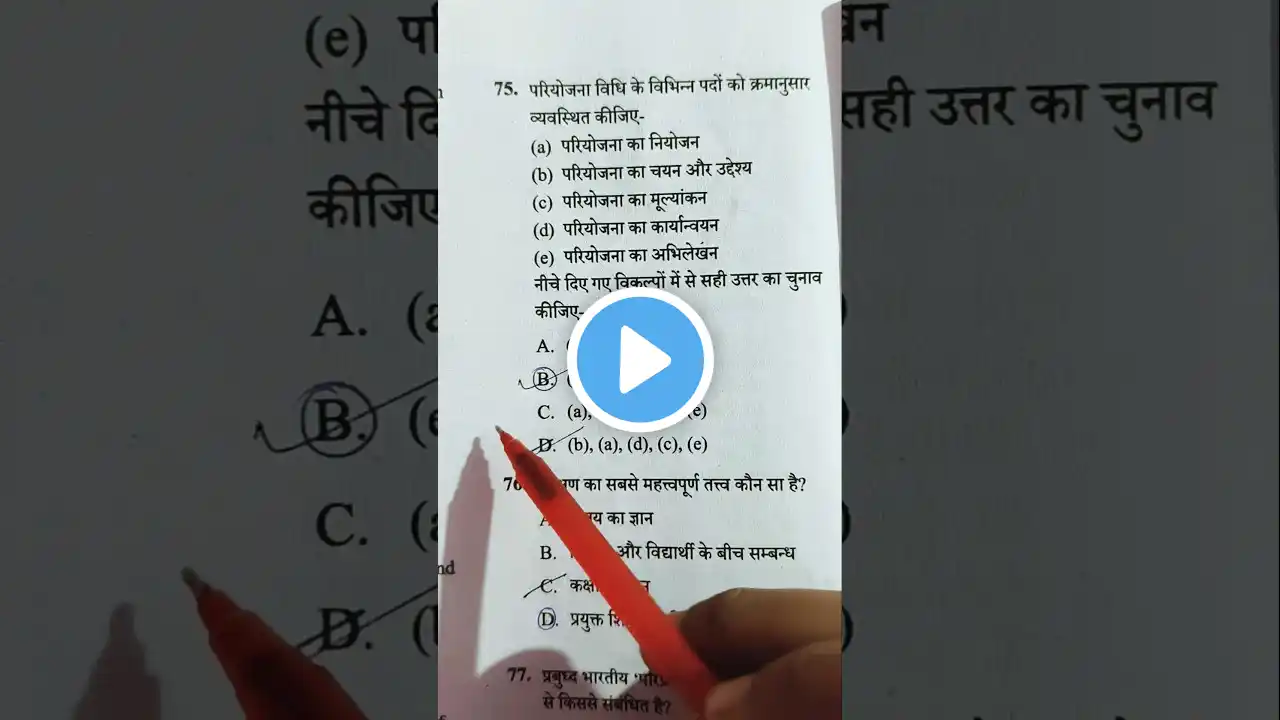 75. परियोजना विधि के विभिन्न पदों को क्रमानुसार
व्यवस्थित कीजिए-
(a) परियोजना का नियोजन
(b) परियोजना का चयन और उद्देश्य
(c) परियोजना का मूल्यांकन
(d) परियोजना का कार्यान्वयन
(e) परियोजना का अभिलेखन
नीचे दिए गए विकल्पों में से सही उत्तर का चुनाव
कीजिए-
A.
B.
C. (a), (e)
D. (b), (a), (d), (c), (e)
76 का सबसे महत्त्वपूर्ण तत्त्व कौन सा है?
का ज्ञान
B. और विद्यार्थी के बीच सम्बन्ध
C.
D. प्रयुक्त
77. प्रबुध्द भारतीय
से किससे संबंधित है?
(e)
नीचे
सही उत्तर का चुनाव
A.
B.
C.
D.